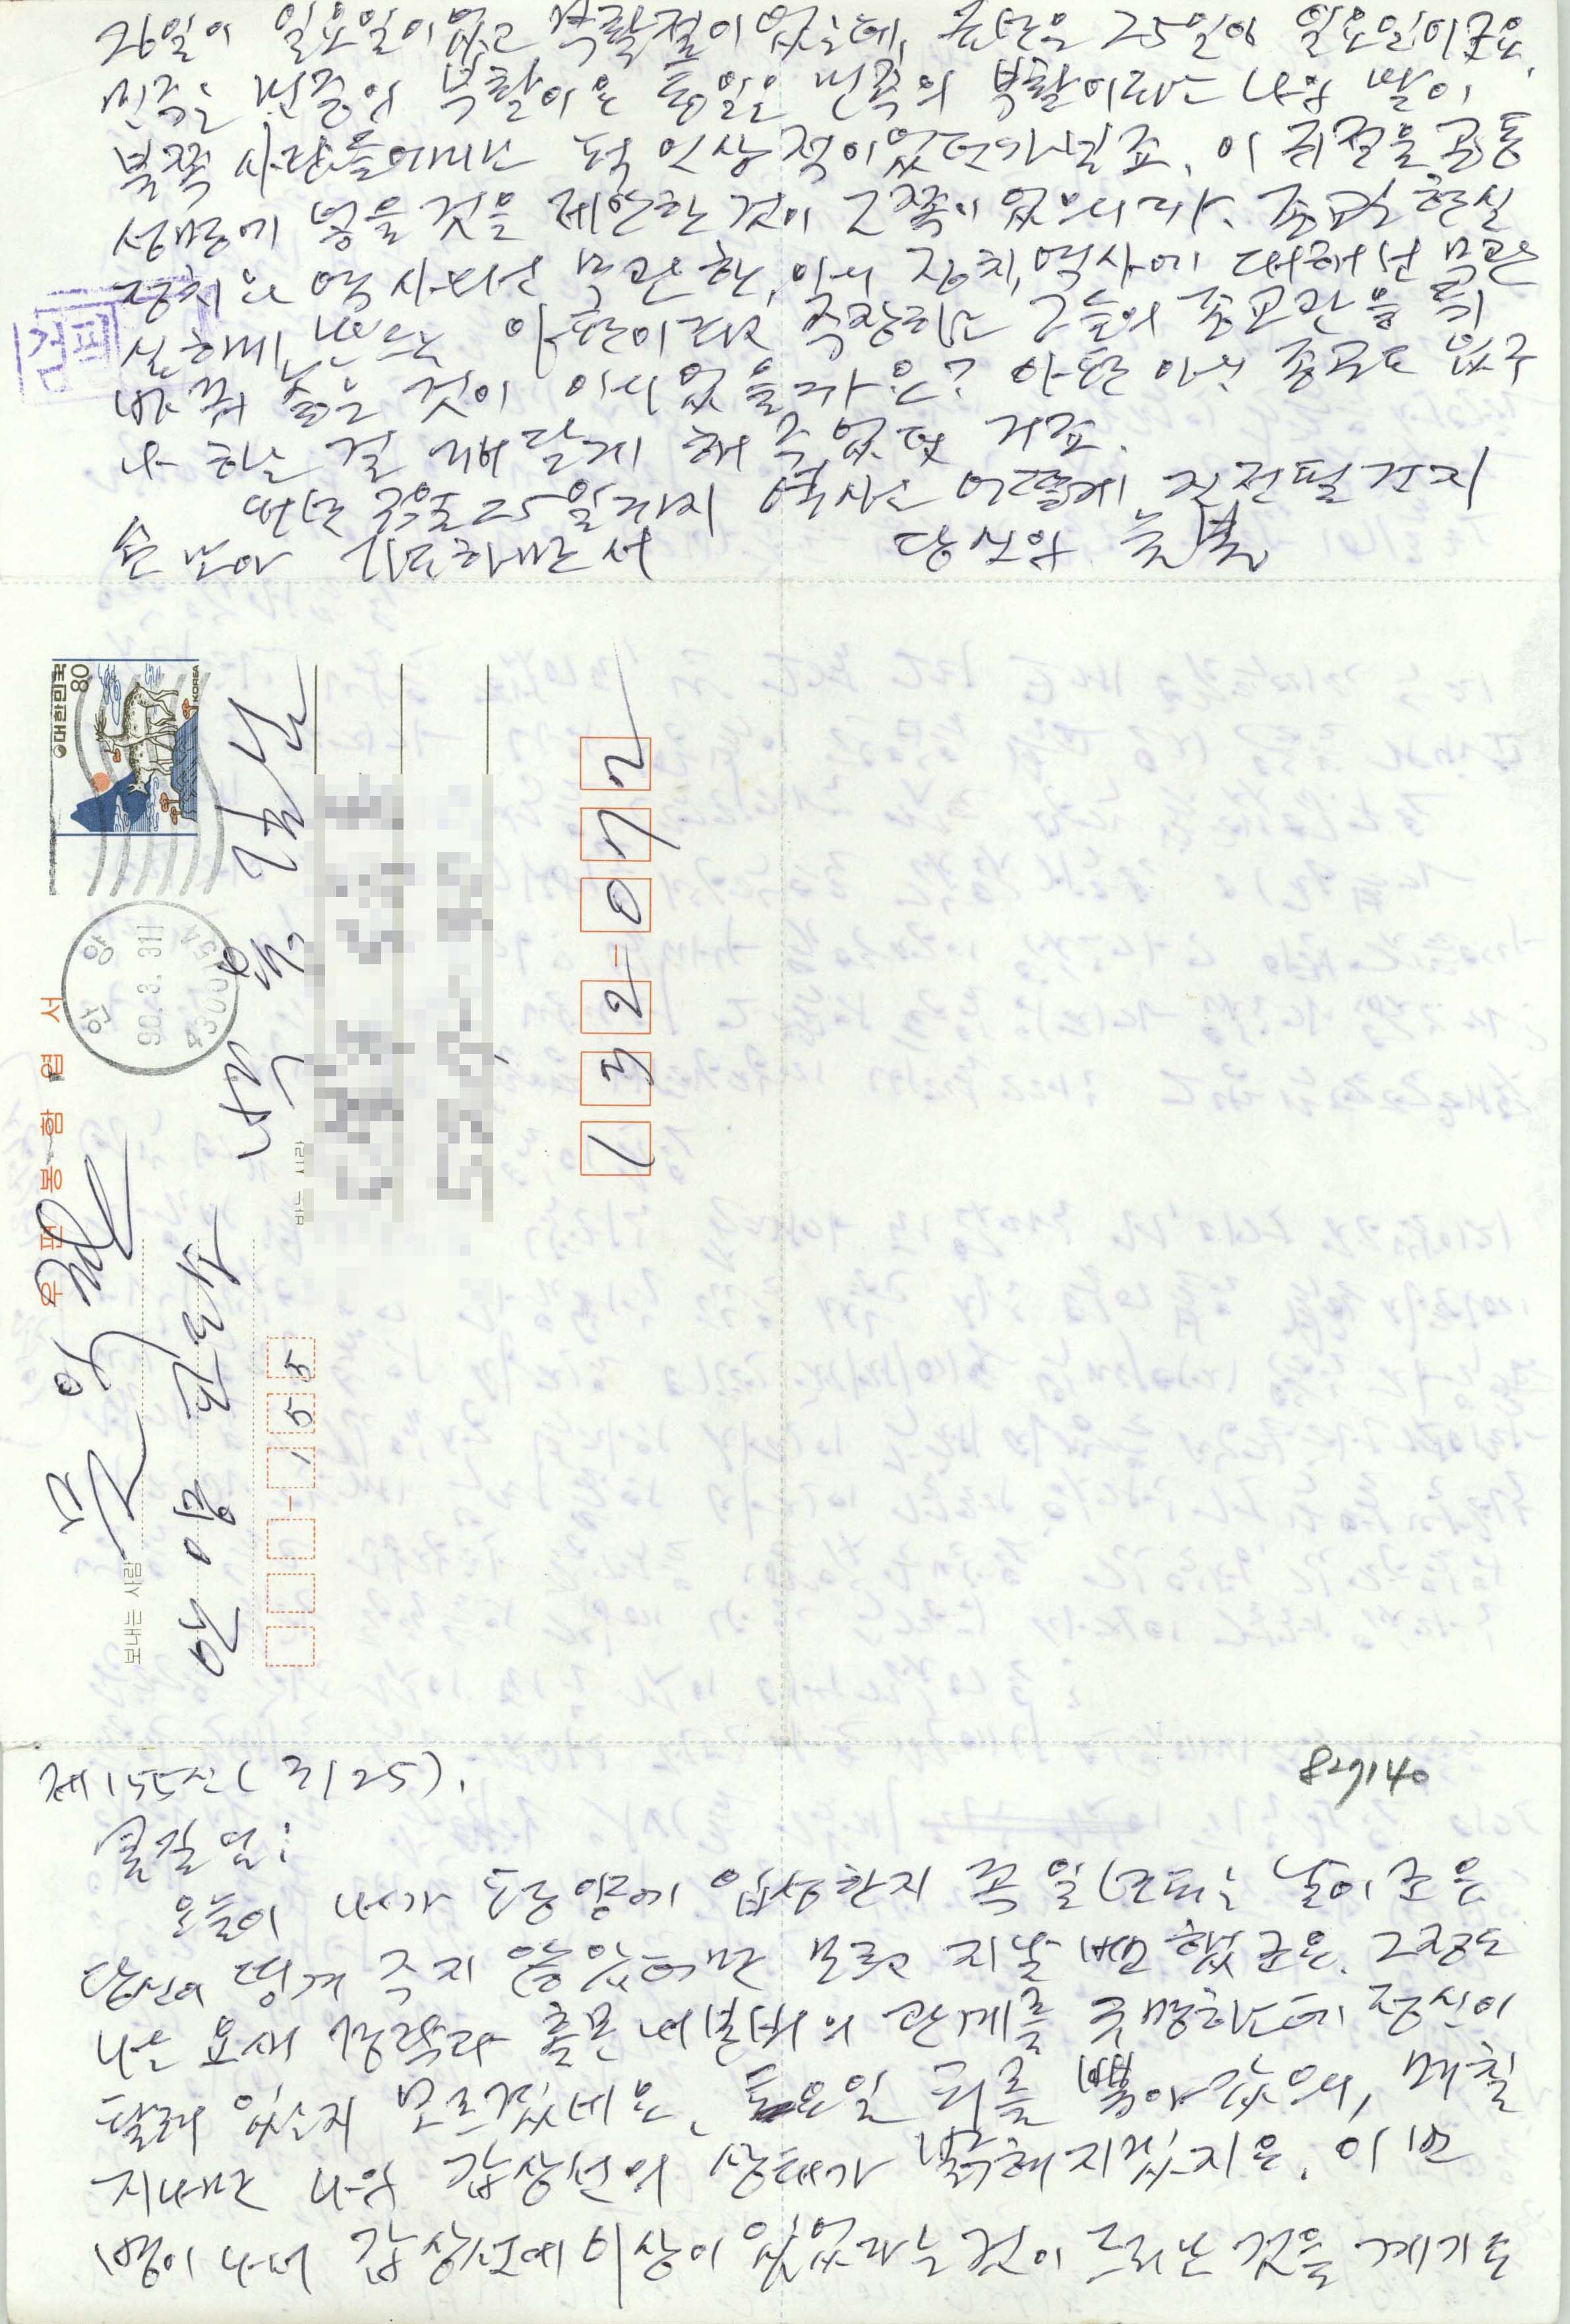 26일이 일요일이었고 부활절이었는데, 금년은 25일이 일요일이군요.
민주는 민중의 부활이요 통일은 민족의 부활이라는 나의 말이
북쪽 사람들에게는 퍽 인상적이었던가 보죠. 이 귀절을 공동
성명에 넣을 것을 제안한 것이 그쪽이었으니까.
종교는 아편이라고 주장하는 그들의 종교관을
바꿔 놓은 것이 아니었을까요? 아편 아닌 종교도 있구
나 하는 걸 깨닫게 해 주었던 거죠.
명년 3월 25일까지 역사는 어떻게 진전될 건지
손 모아 기도하면서 당신의 늦봄
검필
대한민국 KOREA
80
안양
90.3.31
430015
우편봉함엽서
보내는 사람
문익환
안양 교도소
155
받는 사람
박용길 님
132-072
827140
제155신 (3/25).
길님께:
오늘이 내가 안양에 입성한지 꼭 일년되는 날이군요.
당신이 띵겨 주지 않았으면 모르고 지날 뻔 했군요. 그정도
나는 요새 경락과 홀몬 내분비의 관계를 구명하는데 정신이
팔려 있는지 모르겠네요. 토요일 피를 뽑아 갔으니, 며칠
지나면 나의 갑상선의 상태가 분명해지겠지요. 이번
병이 나서 갑상선에 이상이 있었다는 것이 드러난 것을 계기로